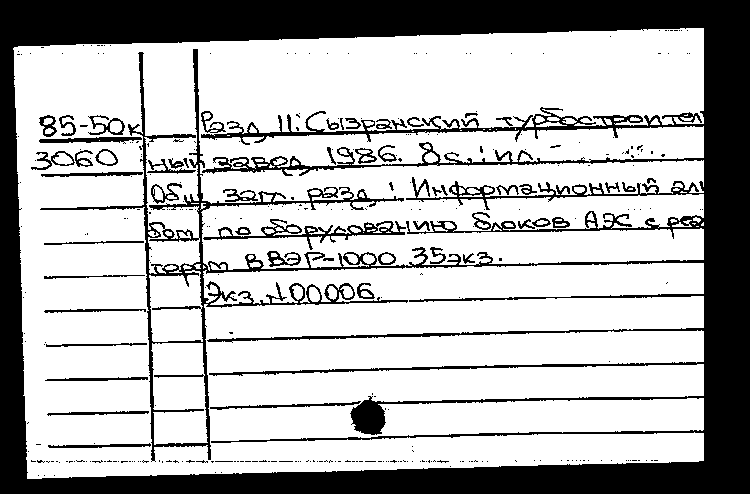 85-50к Разд 11: Сызранский турбостроител
3060 ный завод 1986. 8 с.: ил. –
Общ. загл. разд: Информационный аль
бом по оборудованию блоков АЭС с реак
тором ВВЭР-1000 35экз.
Экз. N00006.